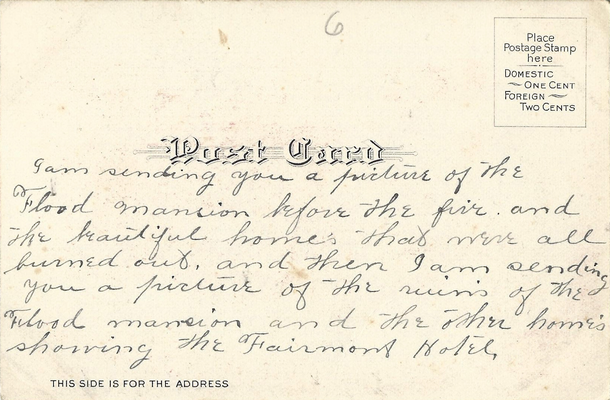 6
Place
Postage Stamp
here
DOMESTIC
ONE CENT
FOREIGN
TWO CENTS
Post Card
I am sending you a picture of the
Flood mansion before the fire. and
the beautiful home's that were all
burned out. and then I am sending
you a picture of the ruins of the
Flood mansion and the other home's
showing the Fairmont Hotel.
THIS SIDE IS FOR THE ADDRESS